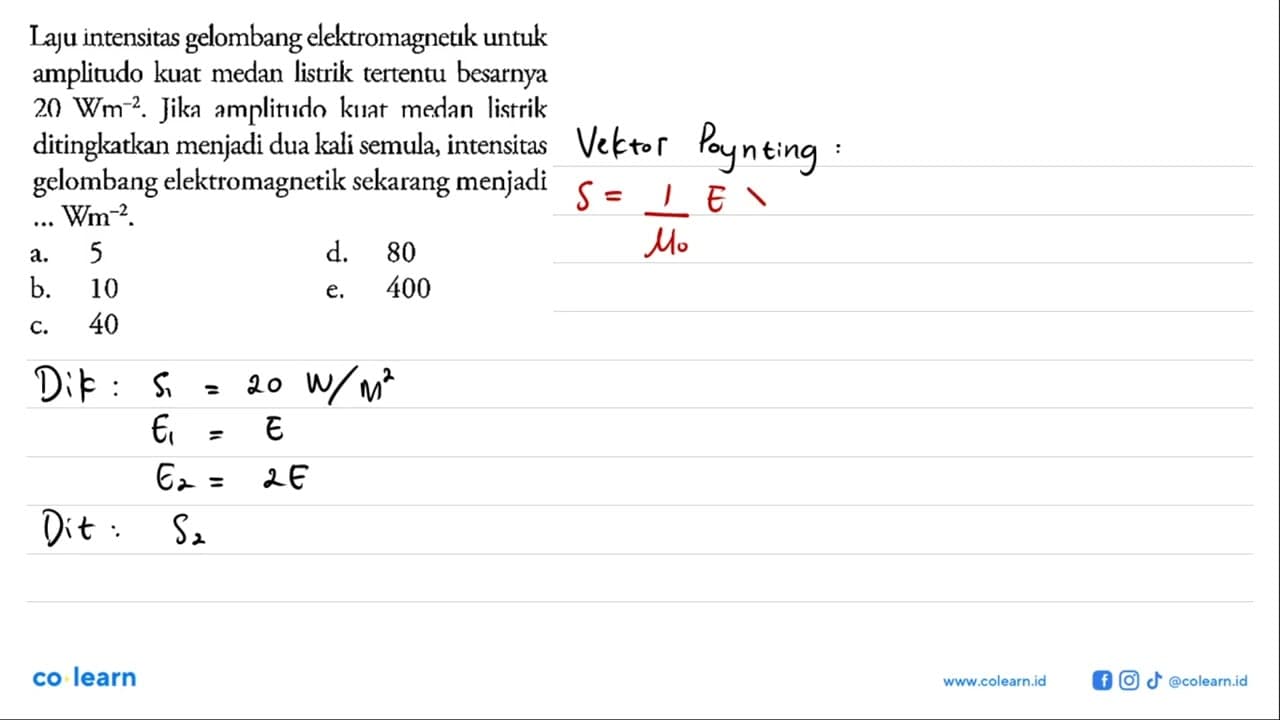 Laju intensitas gelombang elektromagnetik untuk
amplitudo kuat medan listrik tertentu besarnya
20 Wm⁻². Jika amplitudo kuat medan listrik
ditingkatkan menjadi dua kali semula, intensitas
gelombang elektromagnetik sekarang menjadi
... Wm⁻².
a. 5 d. 80
b. 10 e. 400
c. 40
Vektor Poynting :
S = 1/μ₀ E \
Dik : S₁ = 20 W/m²
E₁ = E
E₂ = 2E
Dit : S₂
co learn
www.colearn.id @colearn.id